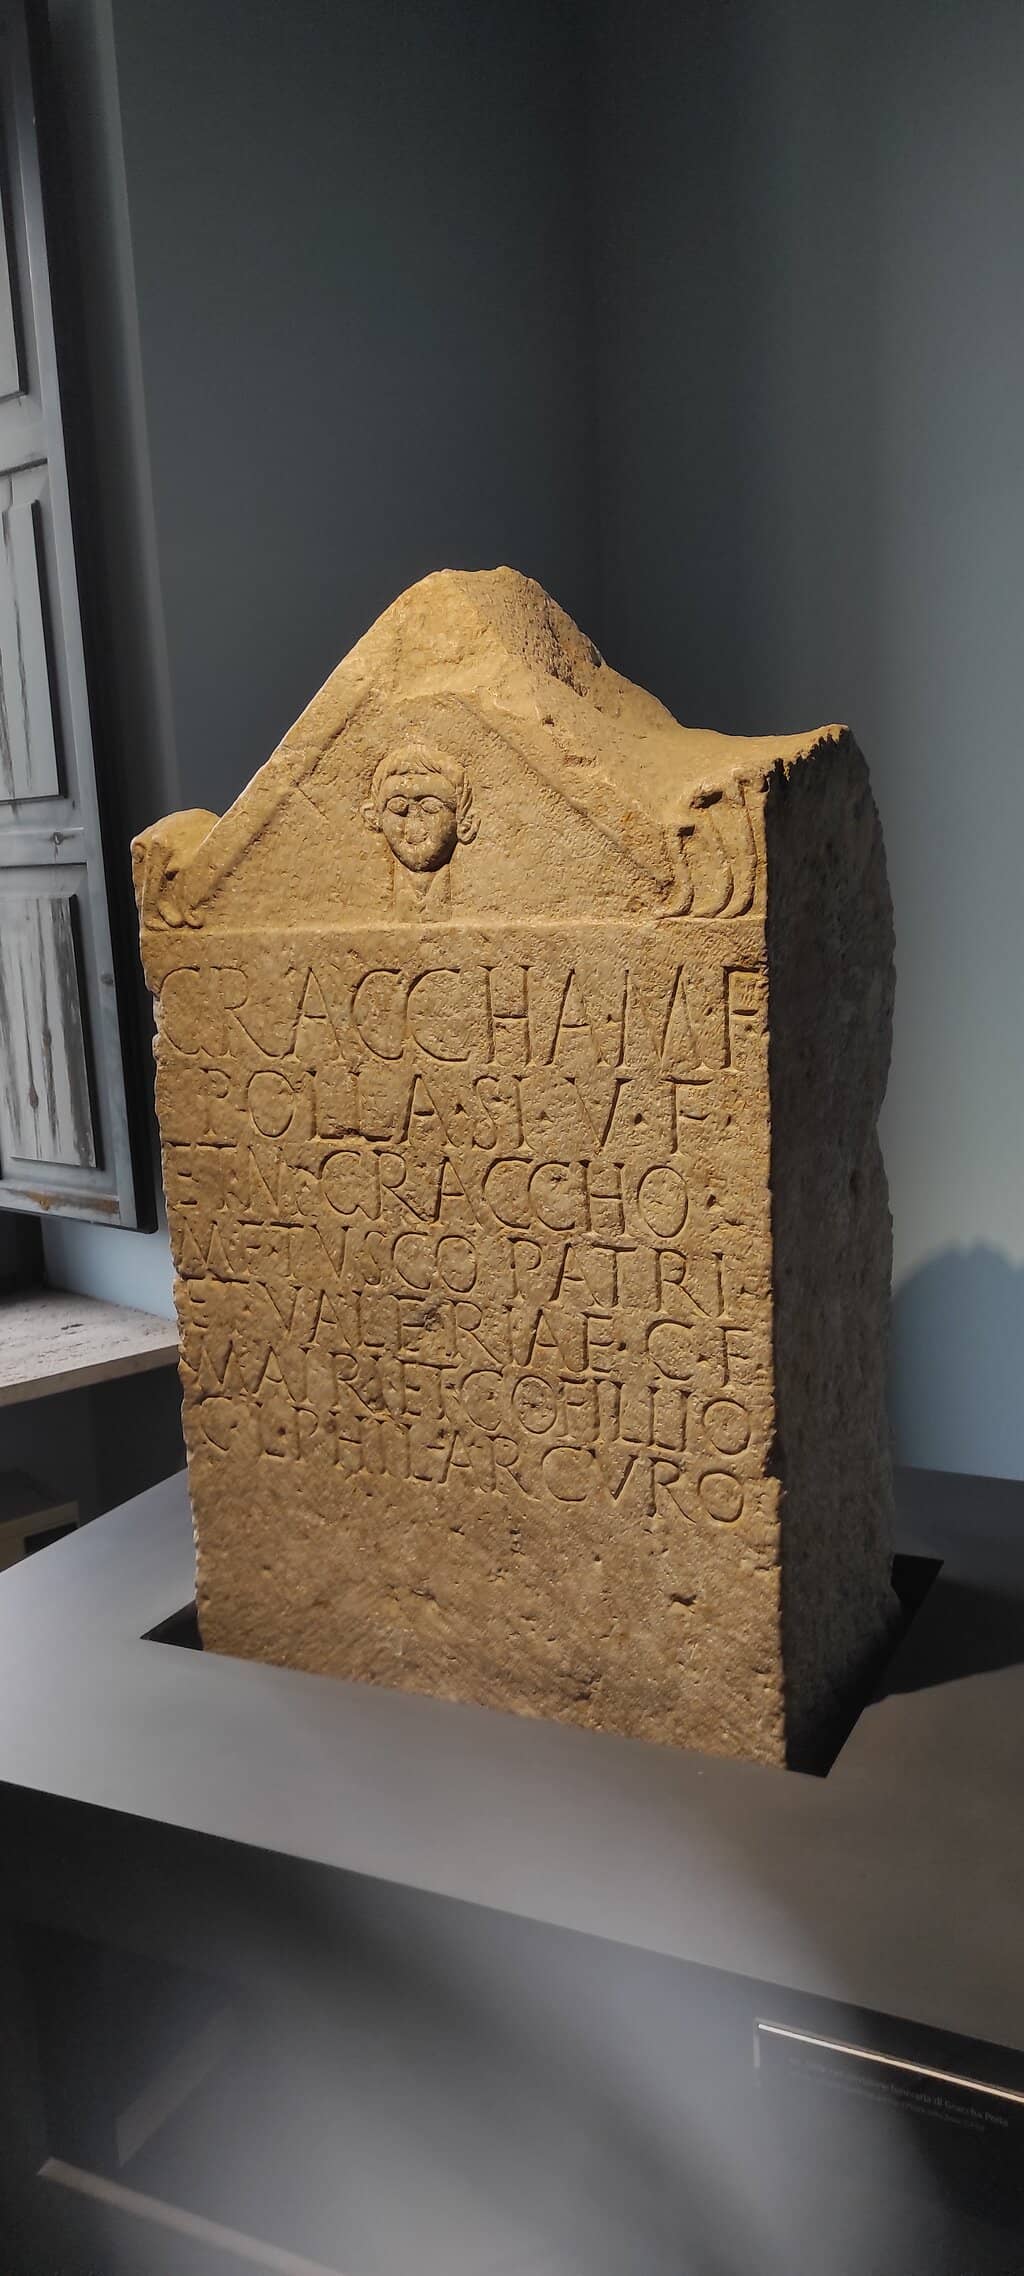 GRACCHA·M·F
POLLA·SI·V·F·
ET·N·GRACCHO·
M·F·TVSCO PATRI·
ET·VALERIAE·C·F
MATRI ET COFILLIO
C·L·PHILARCVRO
funeraria di Graccha Polla